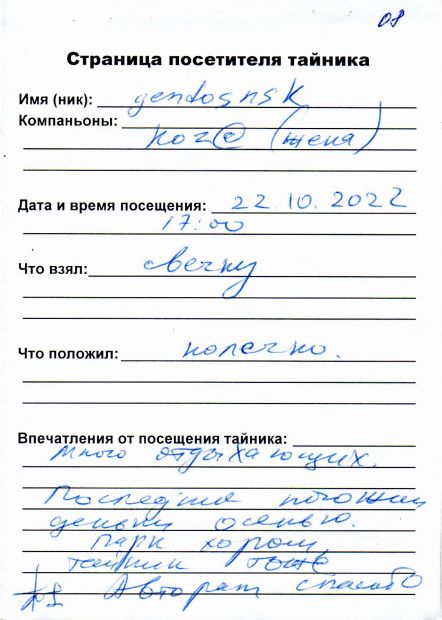 08
Страница посетителя тайника
Имя (ник): gendosnsk
Компаньоны:
koz@ (жена)
Дата и время посещения: 22.10.2022
17:00
Что взял: свечку
Что положил: колечко.
Впечатления от посещения тайника:
Много отдыхающих.
Последние погожии
деньки осенью.
Парк хорош
тайник тоже
Авторам спасибо